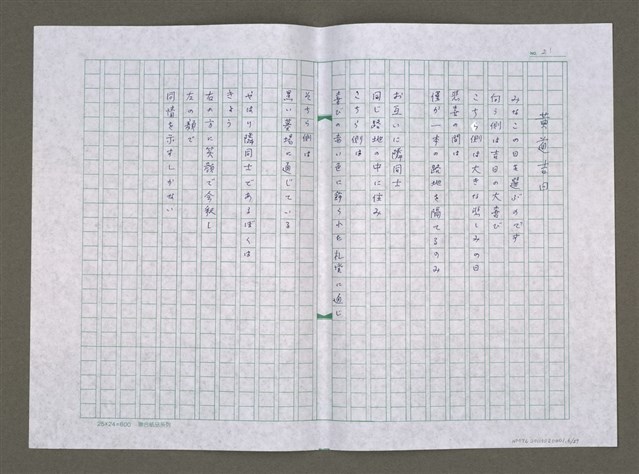 黄道吉日
みなこの日を選ぶのです
向う側は吉日の大喜び
こちら側は大きな悲しみの日
悲喜の間は
僅か一本の路地を隔てるのみ
お互いに隣同士
同じ路地の中に住み
こちら側は
喜びの赤い色に飾られた礼堂に通じ
そちら側は
黒い墓場に通じている
やはり隣同士であるぼくは
きょう
右の方に笑顔で会釈し
左の顔で
同情を示すしかない
25×24=600